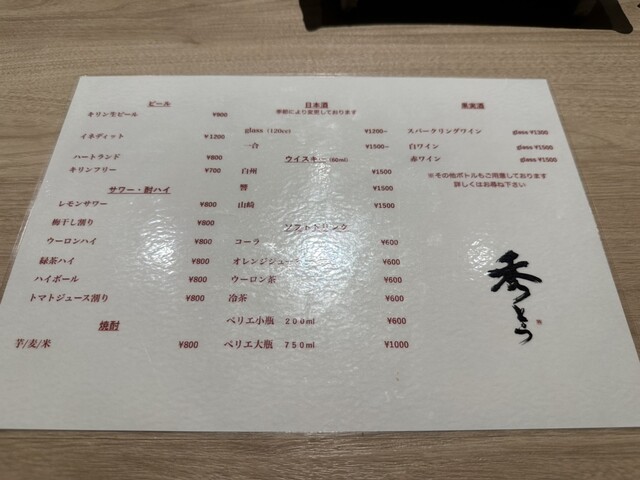 ビール
キリン生ビール ¥800
イネディット ¥1200
ハートランド ¥800
キリンフリー ¥700
サワー・酎ハイ
レモンサワー ¥800
梅干し割り ¥800
ウーロンハイ ¥800
緑茶ハイ ¥800
ハイボール ¥800
トマトジュース割り ¥800
焼酎
芋/麦/米 ¥800
日本酒
季節により変更しております
glass（120cc） ¥1200~
一合 ¥1500~
ウイスキー (60ml)
白州 ¥1500
響 ¥1500
山崎 ¥1500
ソフトドリンク
コーラ ¥600
オレンジジュース ¥600
ウーロン茶 ¥600
冷茶 ¥600
ペリエ小瓶 200ml ¥600
ペリエ大瓶 750ml ¥1000
果実酒
スパークリングワイン glass ¥1300
白ワイン glass ¥1500
赤ワイン glass ¥1500
※その他ボトルもご用意しております
詳しくはお尋ね下さい
秀とう